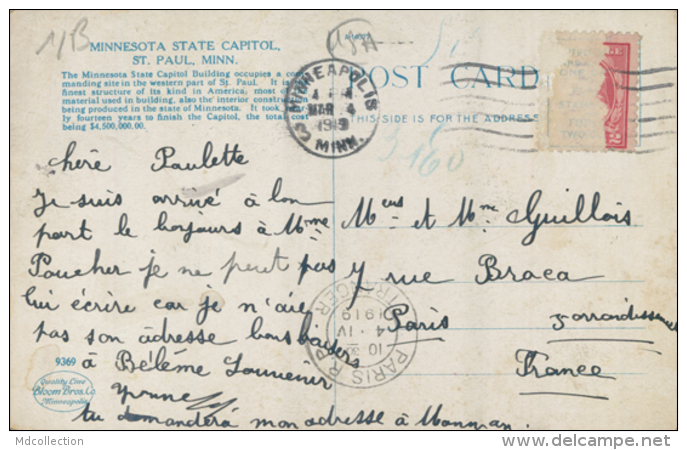 1/B
MINNESOTA STATE CAPITOL,
ST. PAUL, MINN.
The Minnesota State Capitol Building occupies a com-
manding site in the western part of St. Paul. It is
finest structure of its kind in America, most of
material used in building, also the interior construction
being produced in the state of Minnesota. It took
ly fourteen years to finish the Capitol, the total cost
being $4,500,000.00.
MINNEAPOLIS
MAR 4
1919
MINN.
POST CARD
THIS SIDE IS FOR THE ADDRESS
3 160
chère Paulette
Je suis arrivé à bon
port le bonjours à Mme
Poucher je ne peut pas
lui écrire car je n'aie
pas son adresse bons baisers
à Bélème Souvenir
Yvonne
tu demandera mon adresse à Maman.
Mrs et Mme Guillois
7 rue Braca
Paris arrondissement
France
PARIS R.P.
ETRANGER
10 30
4 - IV
1919
9369
Quality Line
Bloom Bros. Co.
Minneapolis
Mdcollection
www.delcampe.net